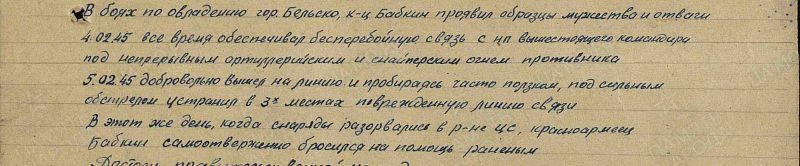 В боях по овладению гор. Бельско, к-ц Бабкин проявил образцы мужества и отваги
4.02.45 все время обеспечивал бесперебойную связь с нп вышестоящего командира
под непрерывным артиллерийским и снайперским огнем противника
5.02.45 добровольно вышел на линию и пробираясь часто ползком, под сильным
обстрелом устранил в 3х местах поврежденную линию связи
В этот же день, когда снаряды разорвались в р-не ЦС, красноармеец
Бабкин самоотверженно бросился на помощь раненым